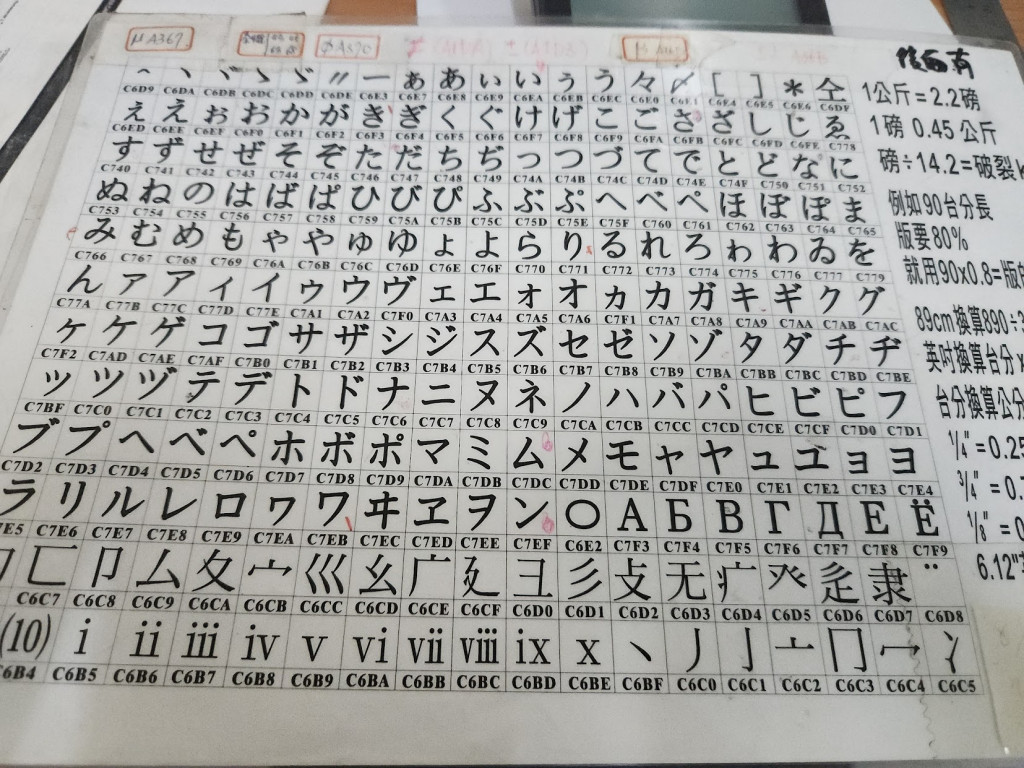 μA367
φA370
ヽ ヾ ゝ ゞ 〃 ー ぁ あ ぃ い ぅ う 々 〆 [ ] ＊ 仝
C6D9 C6DA C6DB C6DC C6DD C6DE C6E3 C6E7 C6E8 C6E9 C6EA C6EB C6EC C6E0 C6E1 C6E4 C6E5 C6E6 C6DF
ぇ え ぉ お か が き ぎ く ぐ け げ こ ご さ ざ し じ ゑ
C6ED C6EE C6EF C6F0 C6F1 C6F2 C6F3 C6F4 C6F5 C6F6 C6F7 C6F8 C6F9 C6FA C6FB C6FC C6FD C6FE C778
す ず せ ぜ そ ぞ た だ ち ぢ っ つ づ て で と ど な に
C740 C741 C742 C743 C744 C745 C746 C747 C748 C749 C74A C74B C74C C74D C74E C74F C750 C751 C752
ぬ ね の は ば ぱ ひ び ぴ ふ ぶ ぷ へ べ ぺ ほ ぼ ぽ ま
C753 C754 C755 C756 C757 C758 C759 C75A C75B C75C C75D C75E C75F C760 C761 C762 C763 C764 C765
み む め も ゃ や ゅ ゆ ょ よ ら り る れ ろ ゎ わ ゐ を
C766 C767 C768 C769 C76A C76B C76C C76D C76E C76F C770 C771 C772 C773 C774 C775 C776 C777 C779
ん ァ ア ィ イ ゥ ウ ヴ ェ エ ォ オ ヵ カ ガ キ ギ ク グ
C77A C77B C77C C77D C77E C7A1 C7A2 C7F0 C7A3 C7A4 C7A5 C7A6 C7F1 C7A7 C7A8 C7A9 C7AA C7AB C7AC
ヶ ケ ゲ コ ゴ サ ザ シ ジ ス ズ セ ゼ ソ ゾ タ ダ チ ヂ
C7F2 C7AD C7AE C7AF C7B0 C7B1 C7B2 C7B3 C7B4 C7B5 C7B6 C7B7 C7B8 C7B9 C7BA C7BB C7BC C7BD C7BE
ッ ツ ヅ テ デ ト ド ナ ニ ヌ ネ ノ ハ バ パ ヒ ビ ピ フ
C7BF C7C0 C7C1 C7C2 C7C3 C7C4 C7C5 C7C6 C7C7 C7C8 C7C9 C7CA C7CB C7CC C7CD C7CE C7CF C7D0 C7D1
ブ プ ヘ ベ ペ ホ ボ ポ マ ミ ム メ モ ャ ヤ ュ ユ ョ ヨ
C7D2 C7D3 C7D4 C7D5 C7D6 C7D7 C7D8 C7D9 C7DA C7DB C7DC C7DD C7DE C7DF C7E0 C7E1 C7E2 C7E3 C7E4
ラ リ ル レ ロ ヮ ワ ヰ ヱ ヲ ン 〇 А Б В Г Д Е Ё
7E5 C7E6 C7E7 C7E8 C7E9 C7EA C7EB C7EC C7ED C7EE C7EF C6E2 C7F3 C7F4 C7F5 C7F6 C7F7 C7F8 C7F9
匚 卩 厶 夂 宀 巛 幺 广 廴 彐 彡 攴 无 疒 癶 辵 隶 ¨
C6C7 C6C8 C6C9 C6CA C6CB C6CC C6CD C6CE C6CF C6D0 C6D1 C6D2 C6D3 C6D4 C6D5 C6D6 C6D7 C6D8
(10) ⅰ ⅱ ⅲ ⅳ ⅴ ⅵ ⅶ ⅷ ⅸ ⅹ 丶 丿 亅 亠 冂 冖 冫
C6B4 C6B5 C6B6 C6B7 C6B8 C6B9 C6BA C6BB C6BC C6BD C6BE C6BF C6C0 C6C1 C6C2 C6C3 C6C4 C6C5
後面有
1公斤=2.2磅
1磅 0.45公斤
磅÷14.2=破裂
例如90台分長
版要80%
就用90x0.8=版
89cm換算890÷3
英吋換算台分x
台分換算公分
1/4"=0.25
3/4"=0.
1/8"=0
6.12"